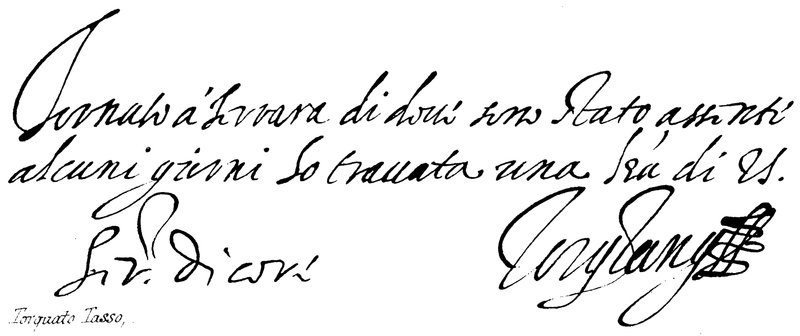 Tornato à Ferrara di dove sono stato assente
alcuni giorni ho trovata una di V.S.
Ser.re di core
Torq Tasso
Torquato Tasso,